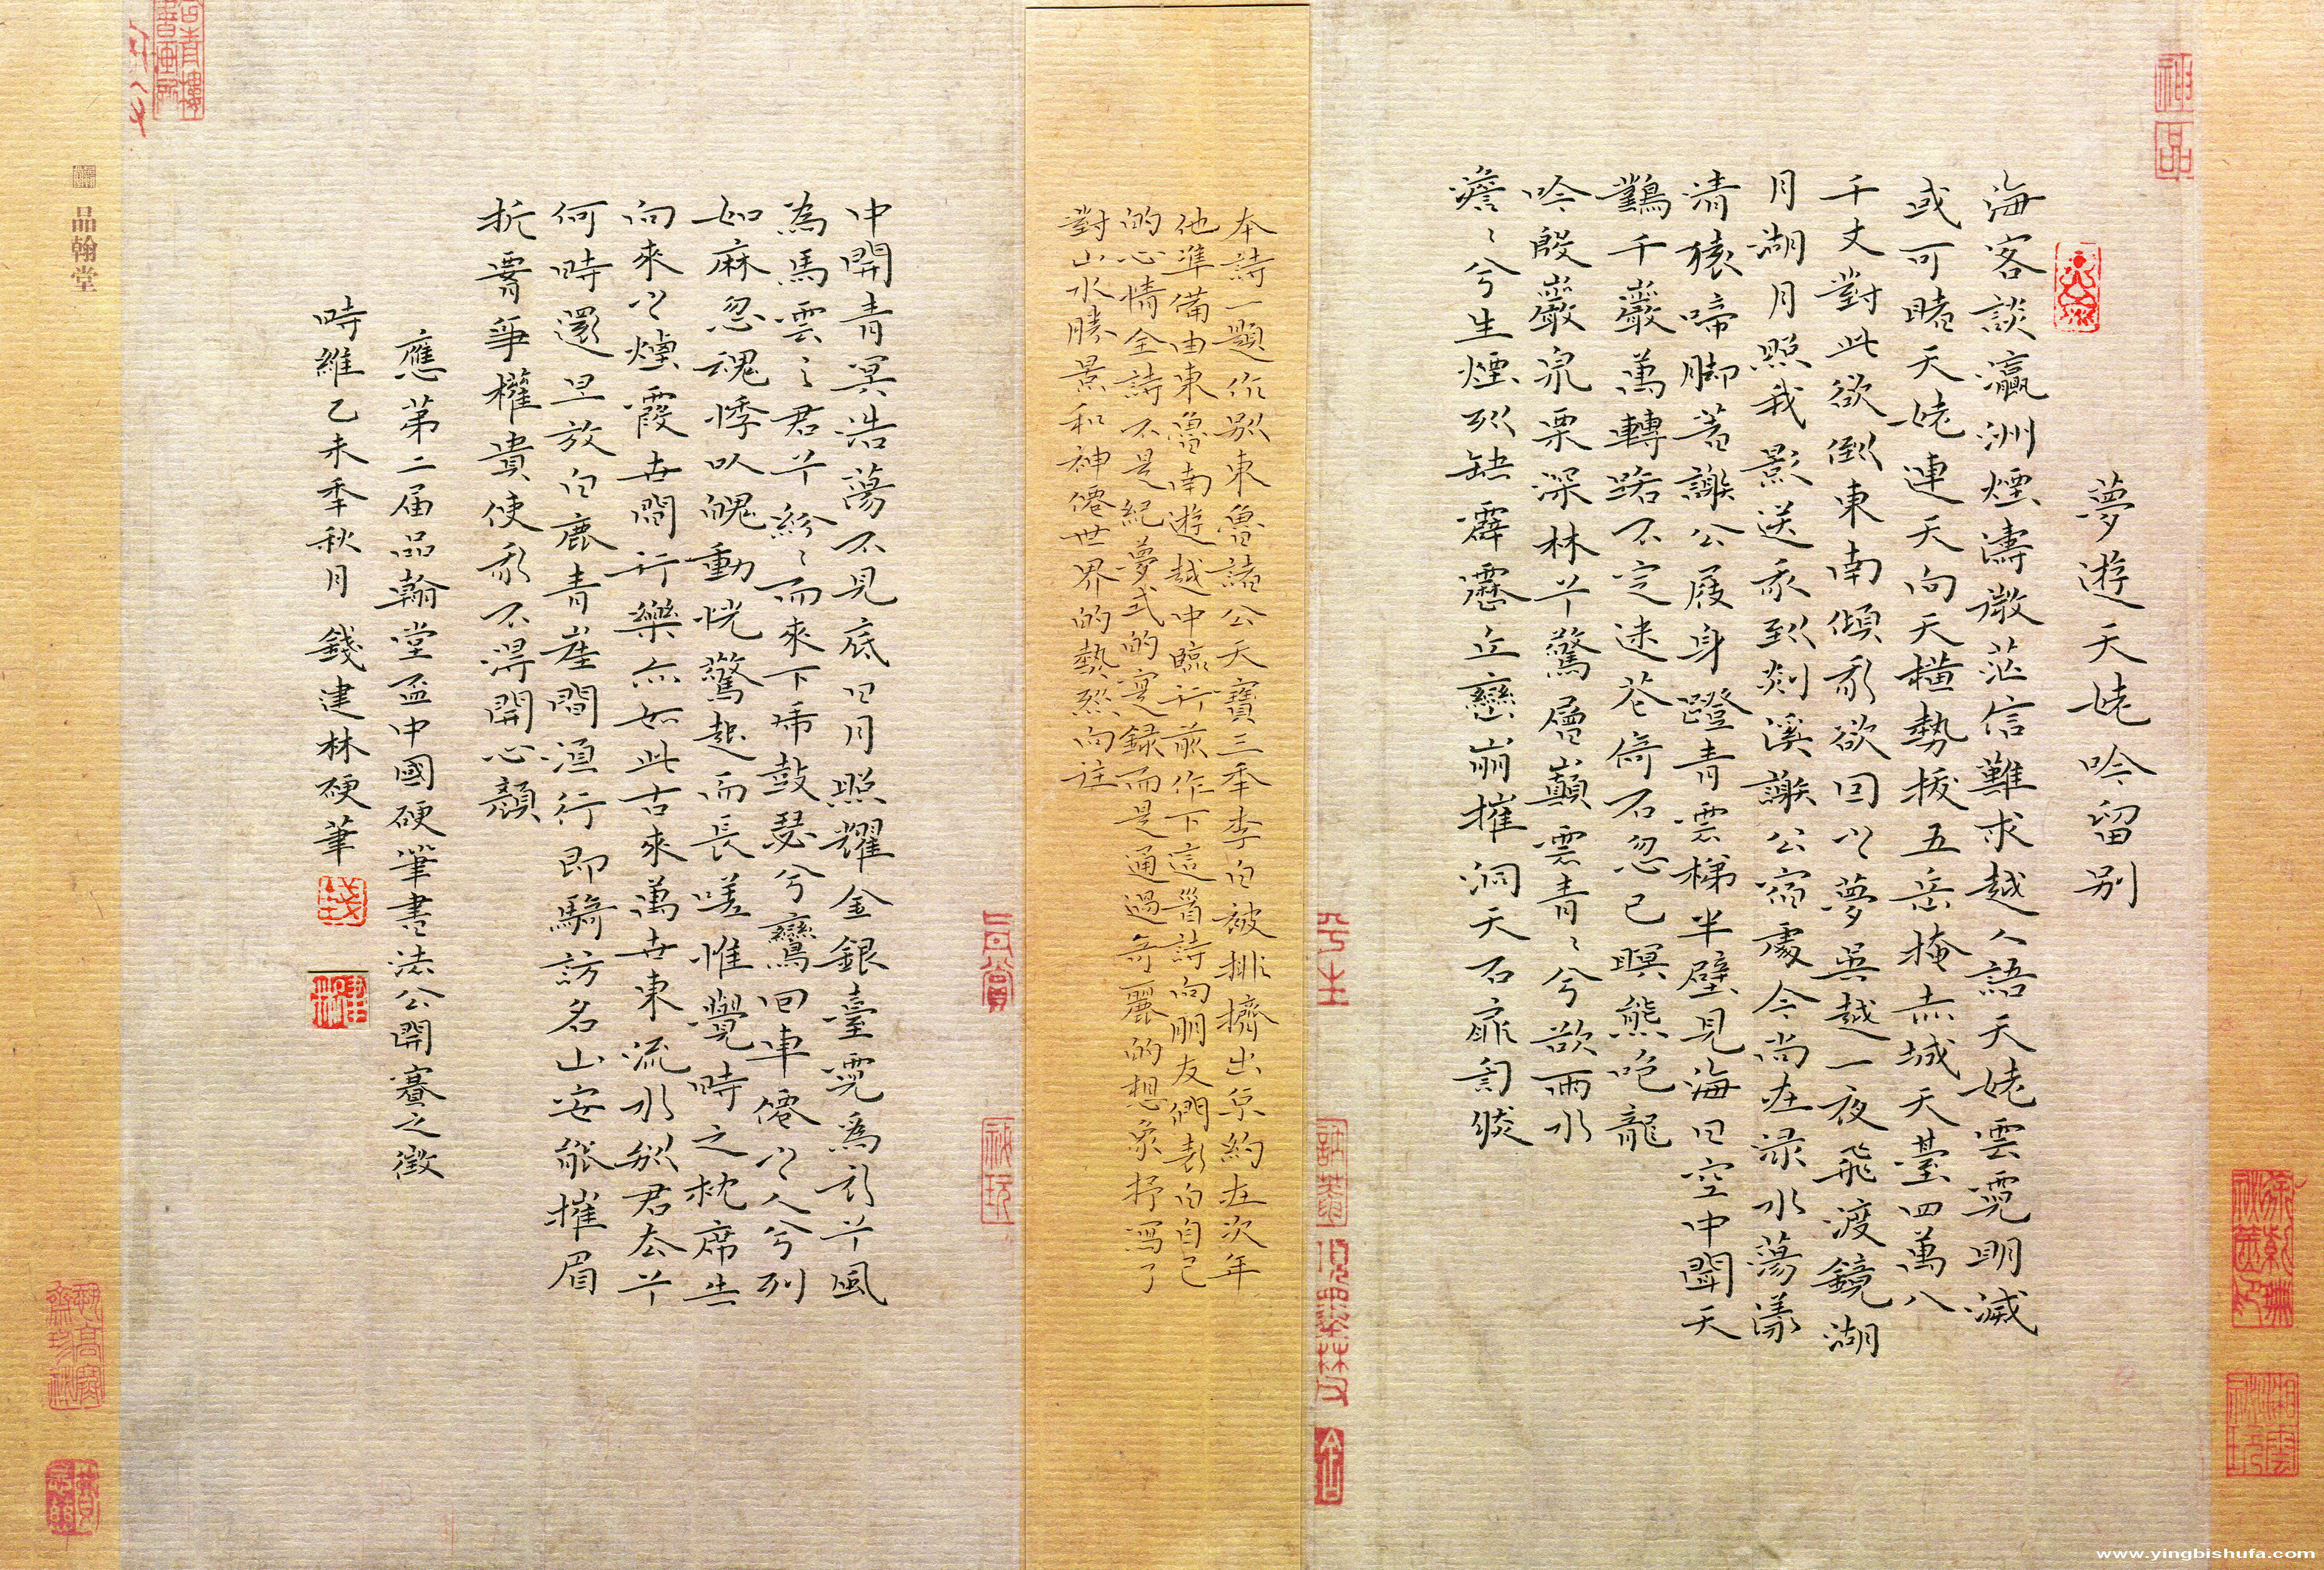 夢遊天姥吟留別
海客談瀛洲煙濤微茫信難求越人語天姥雲霓明滅
或可睹天姥連天向天橫勢拔五岳掩赤城天臺四萬八
千丈對此欲倒東南傾我欲因之夢吳越一夜飛渡鏡湖
月湖月照我影送我到剡溪謝公宿處今尚在淥水蕩漾
清猿啼腳著謝公屐身蹬青雲梯半壁見海日空中聞天
鷄千巖萬轉路不定迷花倚石忽已暝熊咆龍
吟殷巖泉栗深林兮驚層巔雲青〻兮欲雨水
澹〻兮生煙列缺霹靂丘巒崩摧洞天石扉訇然
本詩一題作別東魯諸公天寶三年李白被排擠出京約在次年
他準備由東魯南遊越中臨行前作下這首詩向朋友們表白自己
的心情全詩不是紀夢式的實録而是通過奇麗的想象抒寫了
對山水勝景和神僊世界的熱烈向往
中開青冥浩蕩不見底日月照耀金銀臺霓為衣兮風
為馬雲之君兮紛〻而來下虎鼓瑟兮鸞回車僊之人兮列
如麻忽魂悸以魄動恍驚起而長嗟惟覺時之枕席失
向來之煙霞世間行樂亦如此古來萬世東流水別君去兮
何時還且放白鹿青崖間須行即騎訪名山安能摧眉
折腰事權貴使我不得開心顏
應第二屆品翰堂盃中國硬筆書法公開賽之徵
時維乙未季秋月 錢建林硬筆
品翰堂
神品
www.yingbishufa.com